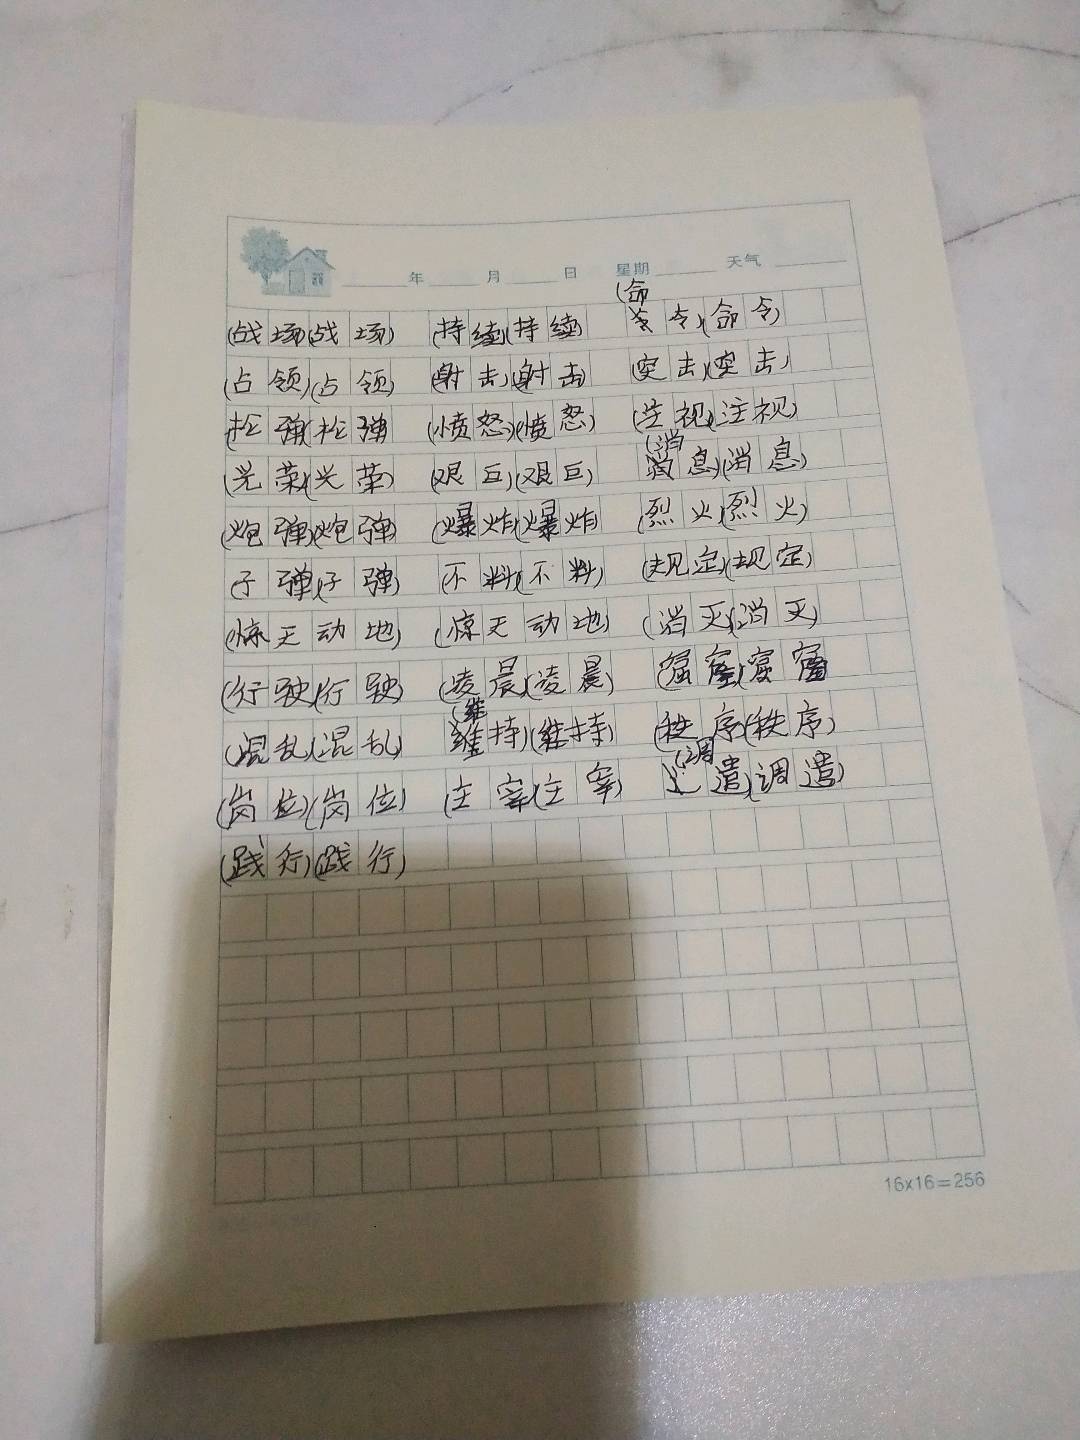 年 月 日 星期 天气
(命
(战场)(战场) (持续)(持续) 令)(命令)
(占领)(占领) (射击)(射击) (突击)(突击)
(枪弹(枪弹 (愤怒)(愤怒) (注视)(注视)
(消
(光荣)(光荣) (艰巨)(艰巨) 息)(消息)
(炮弹)(炮弹) (爆炸)(爆炸) (烈火)(烈火)
(子弹)(子弹) (不料)(不料) (规定)(规定)
(惊天动地) (惊天动地) (消灭)(消灭)
(行驶)(行驶) (凌晨)(凌晨)
(维
(混乱)(混乱) 持)(维持) (秩序)(秩序)
(调
(岗位)(岗位) (主宰)(主宰) 遣)(调遣)
(践行)(践行)
16x16=256